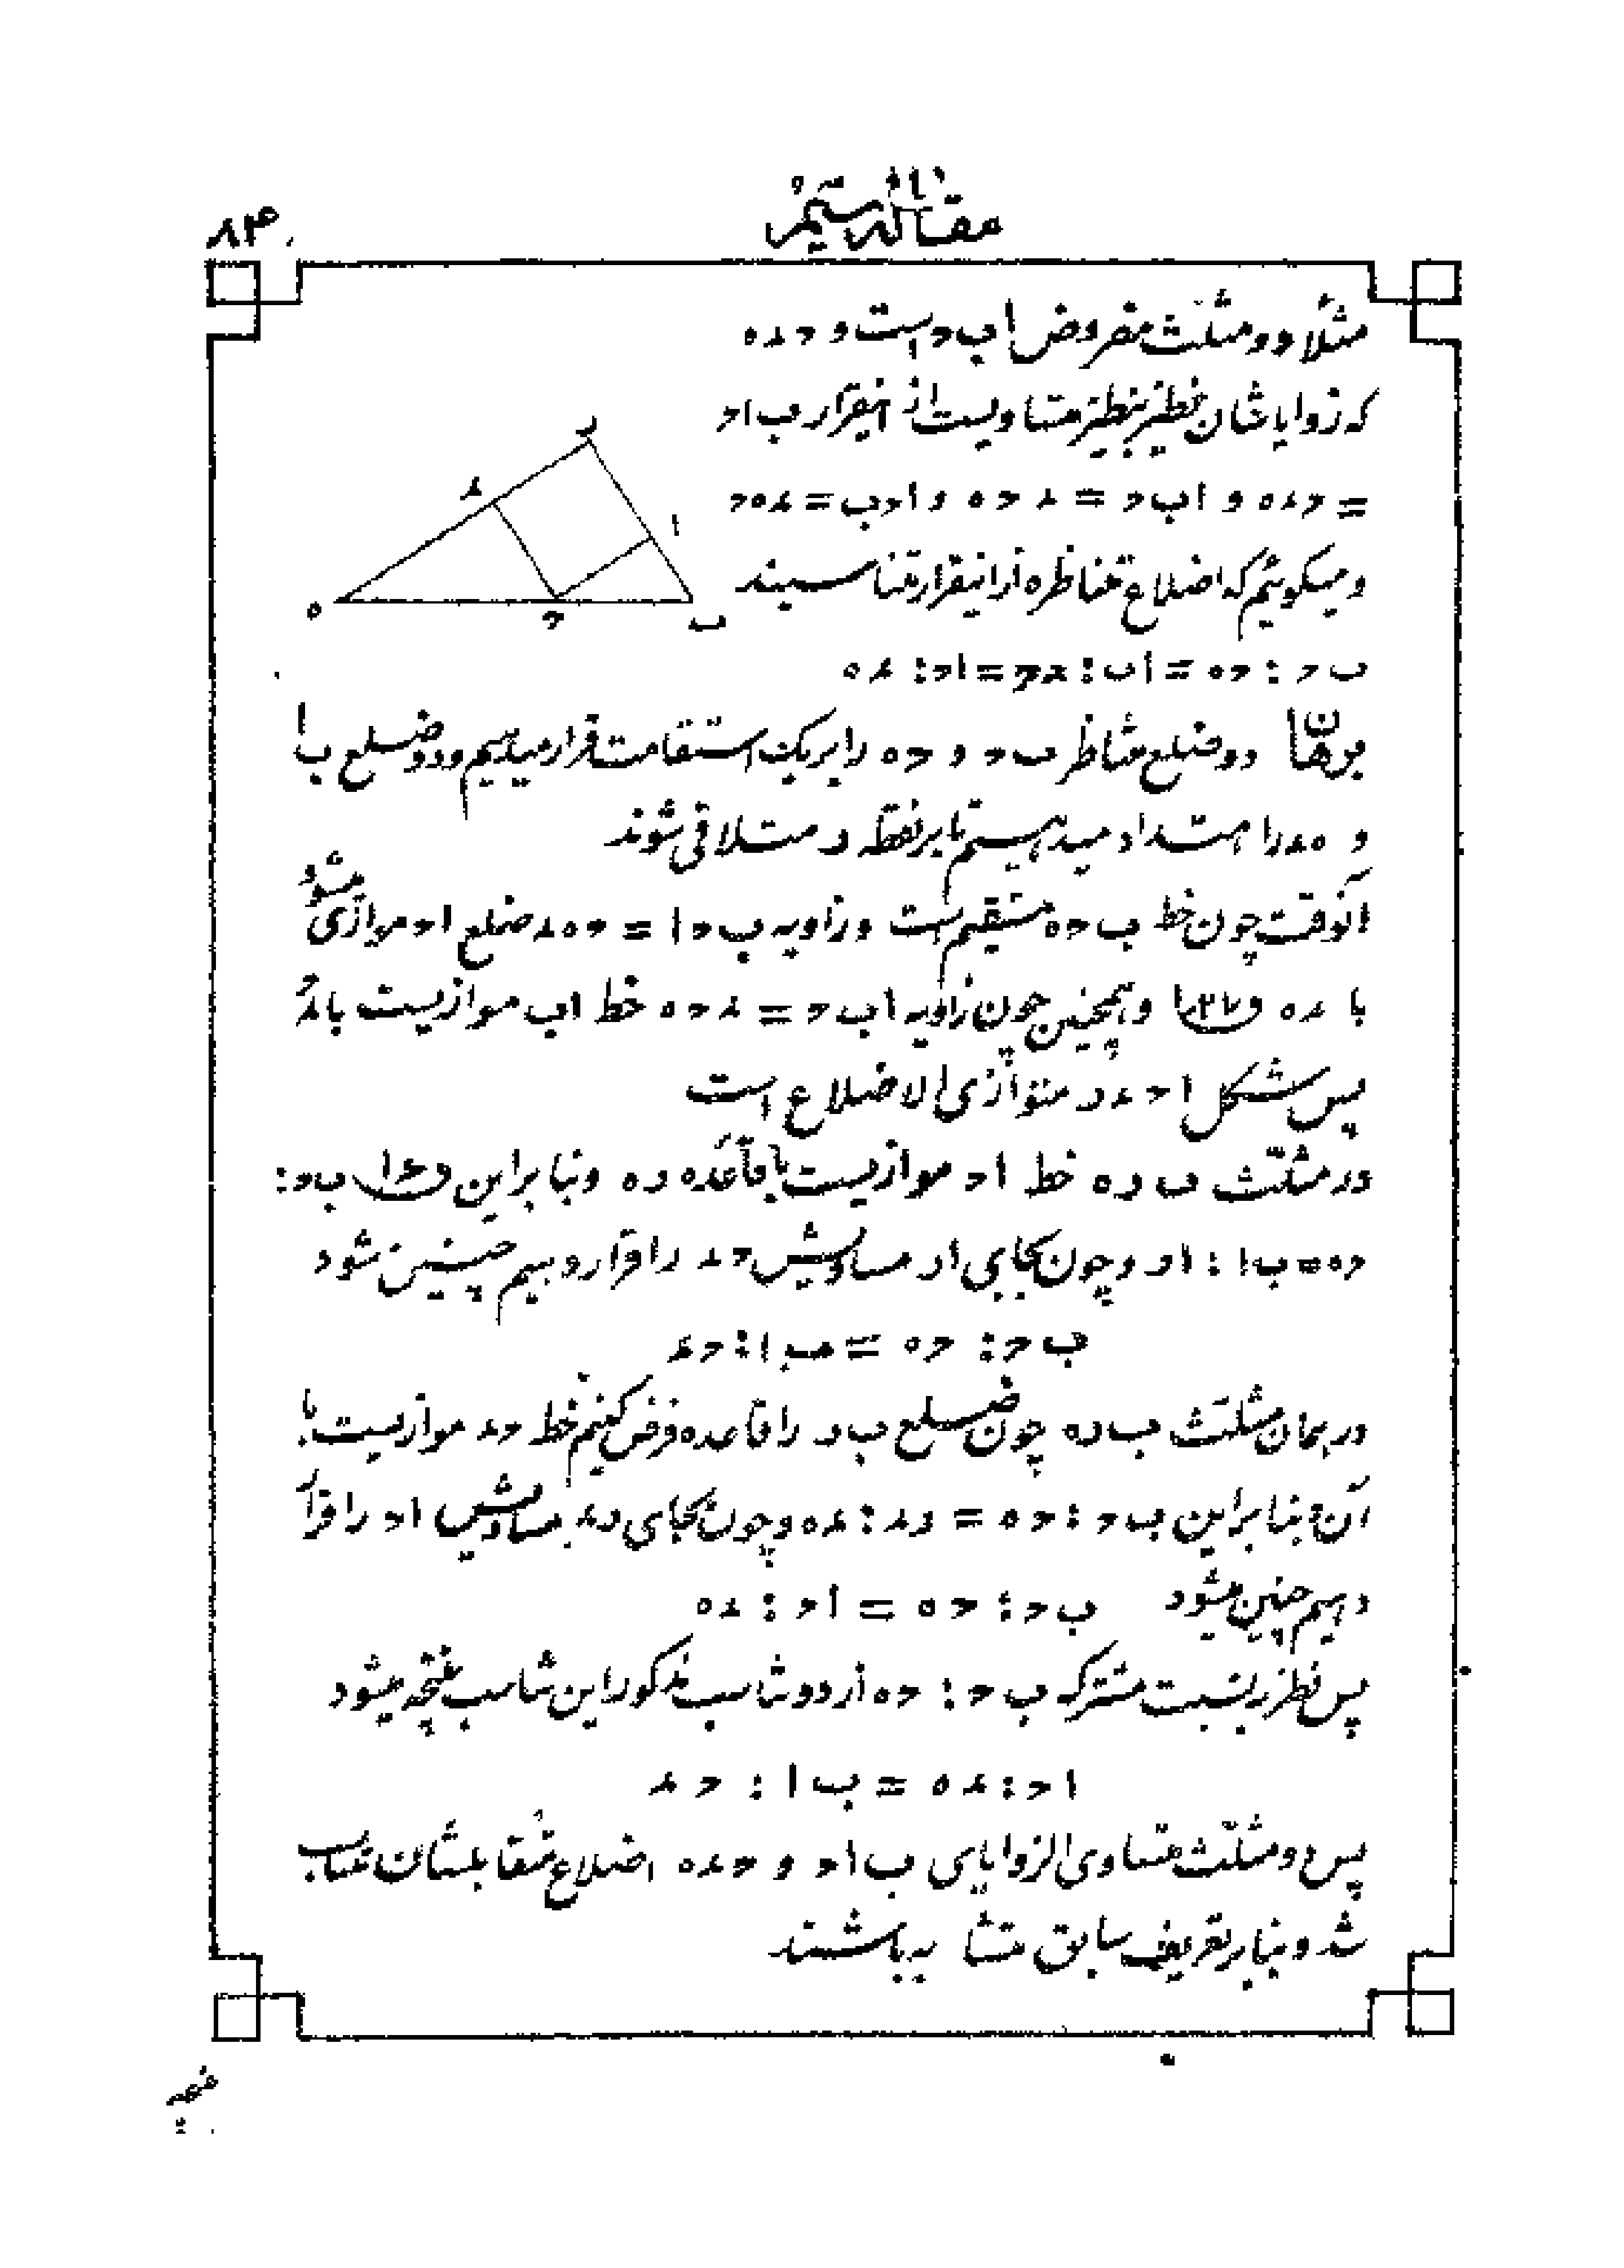 مقاله سیم
۸۳
مثلاً دو مثلث مفروض ا ب ح است و ح ء ه
که زوایاشان نظیر بنظیر متساویست از اینقرار ب ا ح
= ح ء ه و ا ب ح = ء ح ه و ا ح ب = ء ه ح
و میگوئیم که اضلاع متناظره از اینقرار متناسبند
ب ح : ح ه = ا ب : ء ح = ا ح : ء ه
برهان دو ضلع متناظر ب ح و ح ه را بر یک استقامت قرار میدهیم و دو ضلع ب ا
و ه ء را امتداد میدهیم تا بر نقطه د متلاقی شوند
آنوقت چون خط ب ح ه مستقیم است و زاویه ب ح ا = ح ه ء ضلع ا ح موازی میشود
با ء ه و همچنین چون زاویه ا ب ح = ء ح ه خط ا ب موازیست با ء ح
پس شکل ا ح ء د متوازی الاضلاع است
در مثلث ب د ه خط ا ح موازیست با قاعده د ه و بنا براین ب ح :
ح ه = ب ا : ا د و چون بجای ا د مساویش ح ء را قرار دهیم چنین شود
ب ح : ح ه = ب ا : ح ء
در همان مثلث ب د ه چون ضلع ب د را قاعده فرض کنیم خط ح ء موازیست با
آن و بنا براین ب ح : ح ه = د ء : ء ه و چون بجای د ء مساویش ا ح را قرار
دهیم چنین میشود ب ح : ح ه = ا ح : ء ه
پس نظر بنسبت مشترکه ب ح : ح ه از دو تناسب مذکور این تناسب نتیجه میشود
ا ح : ء ه = ب ا : ح ء
پس دو مثلث متساوی الزوایای ب ا ح و ح ء ه اضلاع متقابلشان متناسب
شد و بنا بر تعریف سابق متشابه باشند